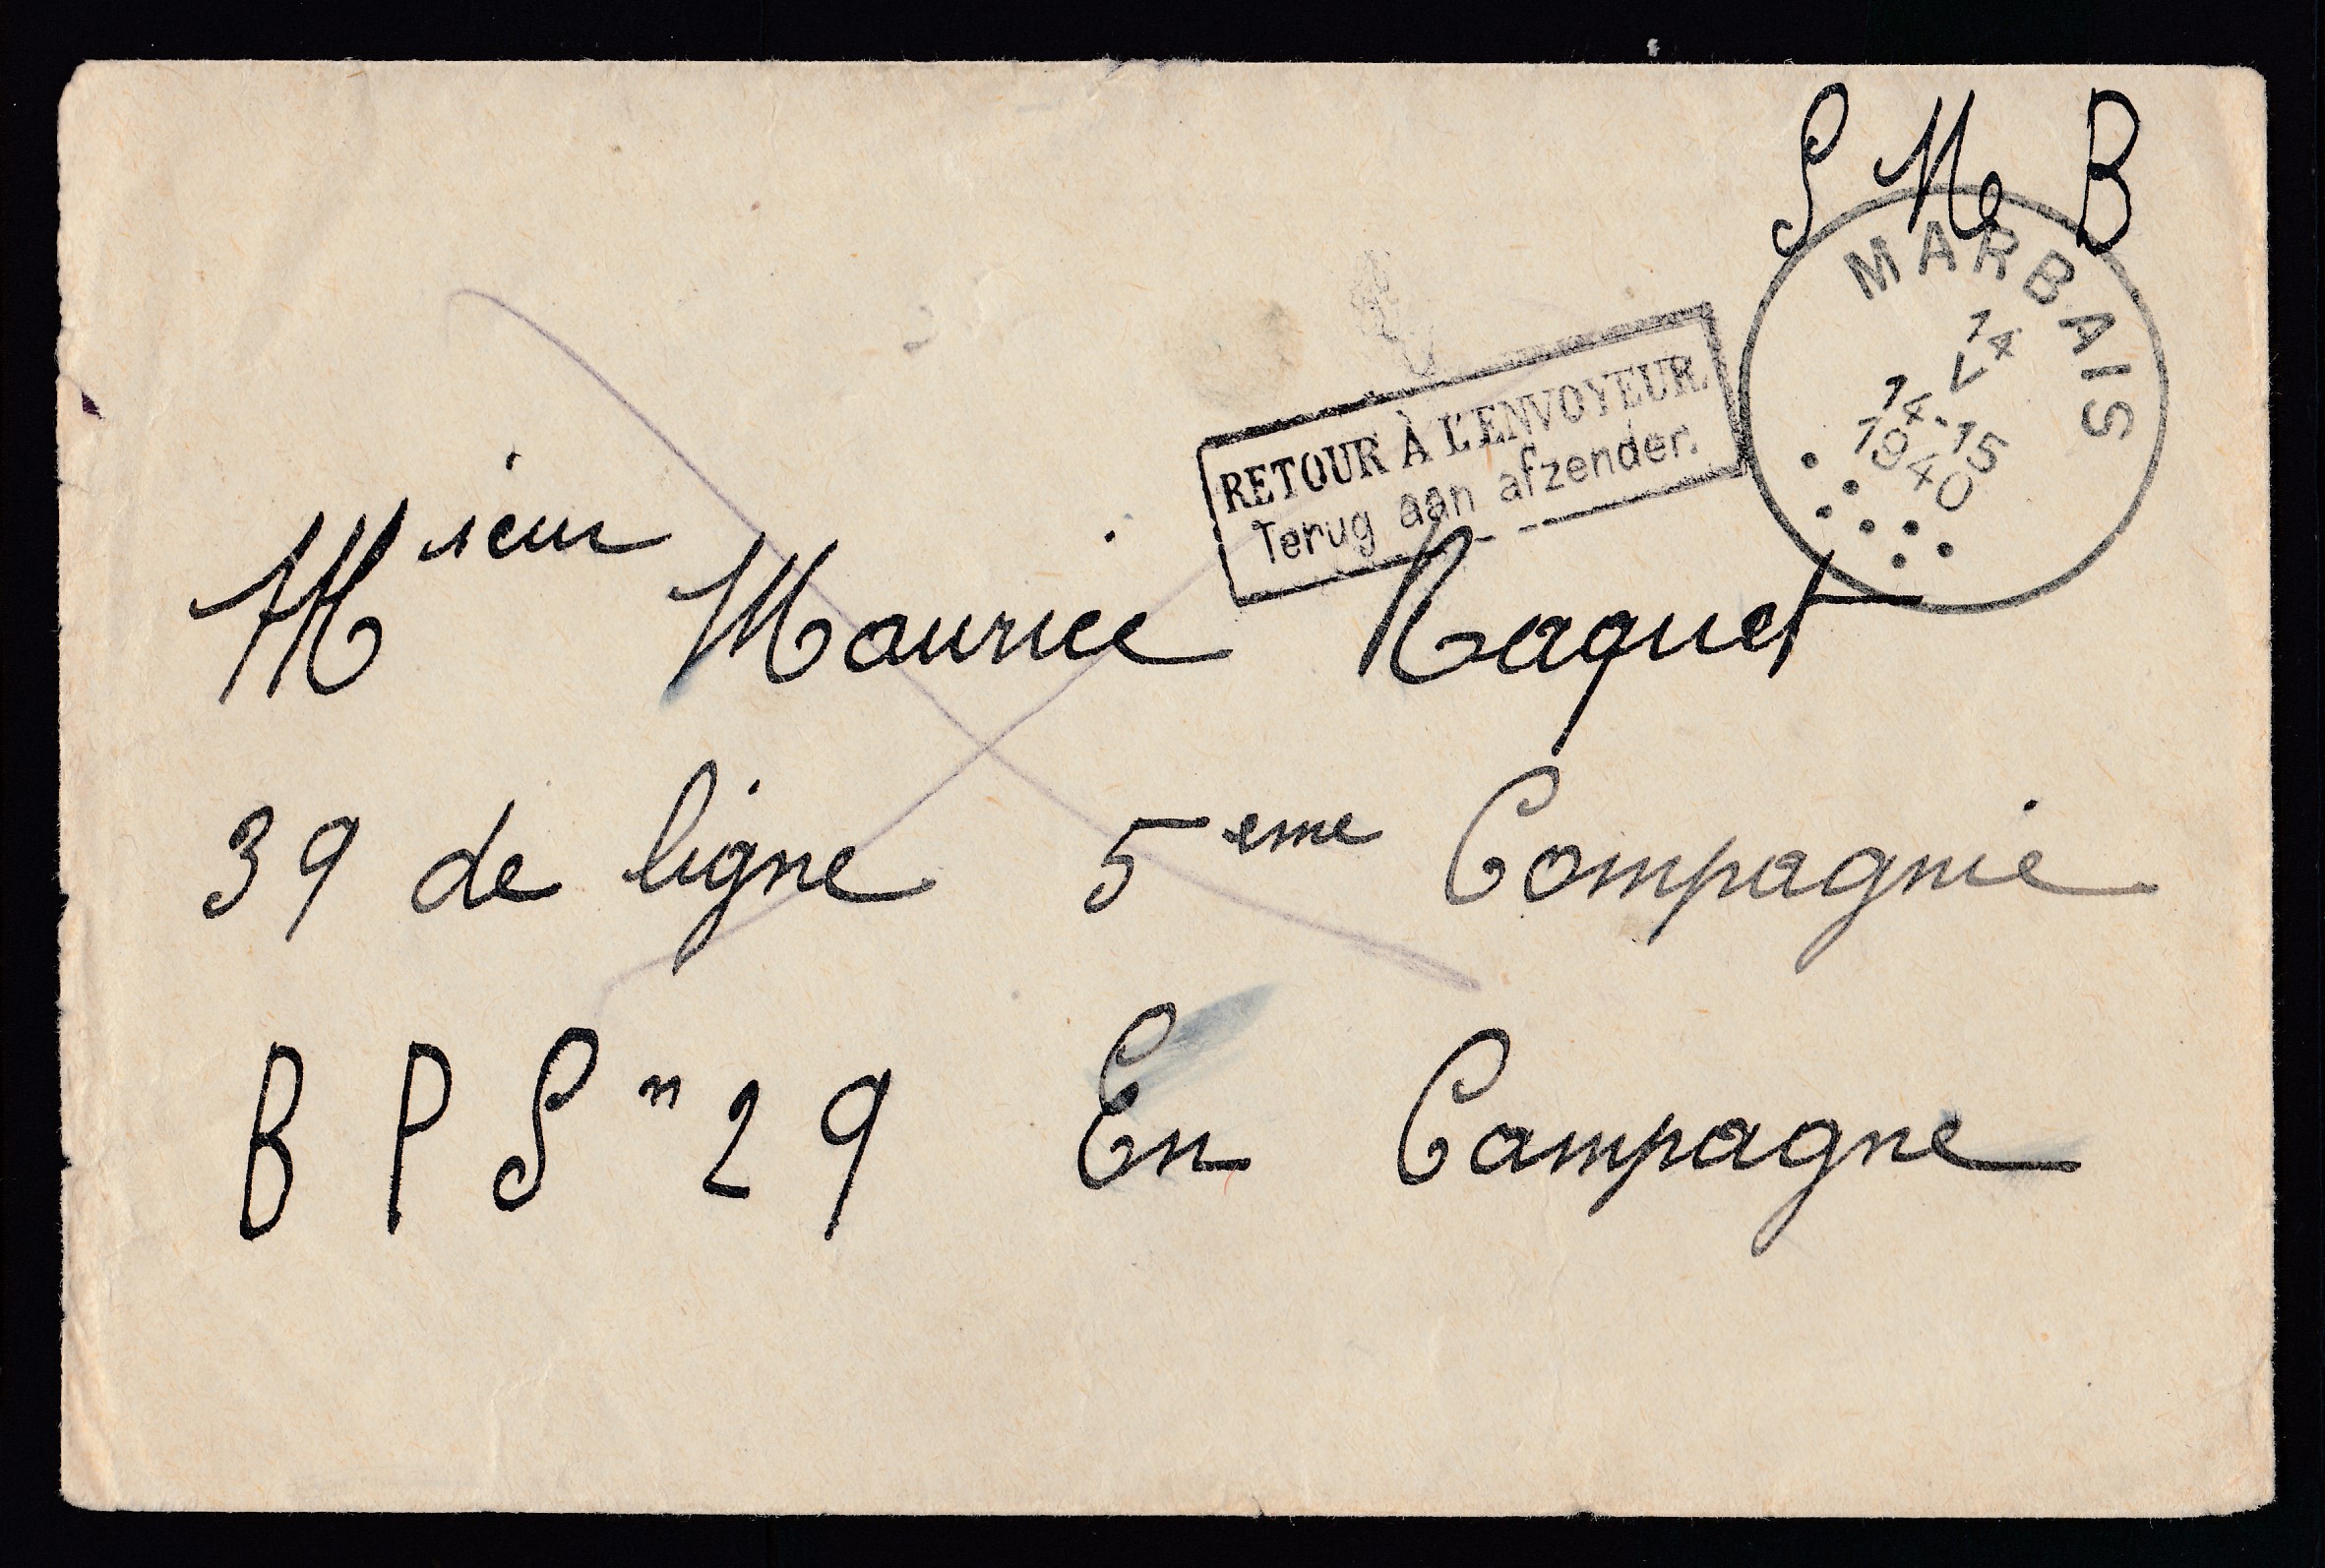 S M B
MARBAIS
14
V
14-15
1940
RETOUR À L'ENVOYEUR
Terug aan afzender.
Mieur Maurice Naquet
39 de ligne 5eme Compagnie
B P S n 29 En Campagne